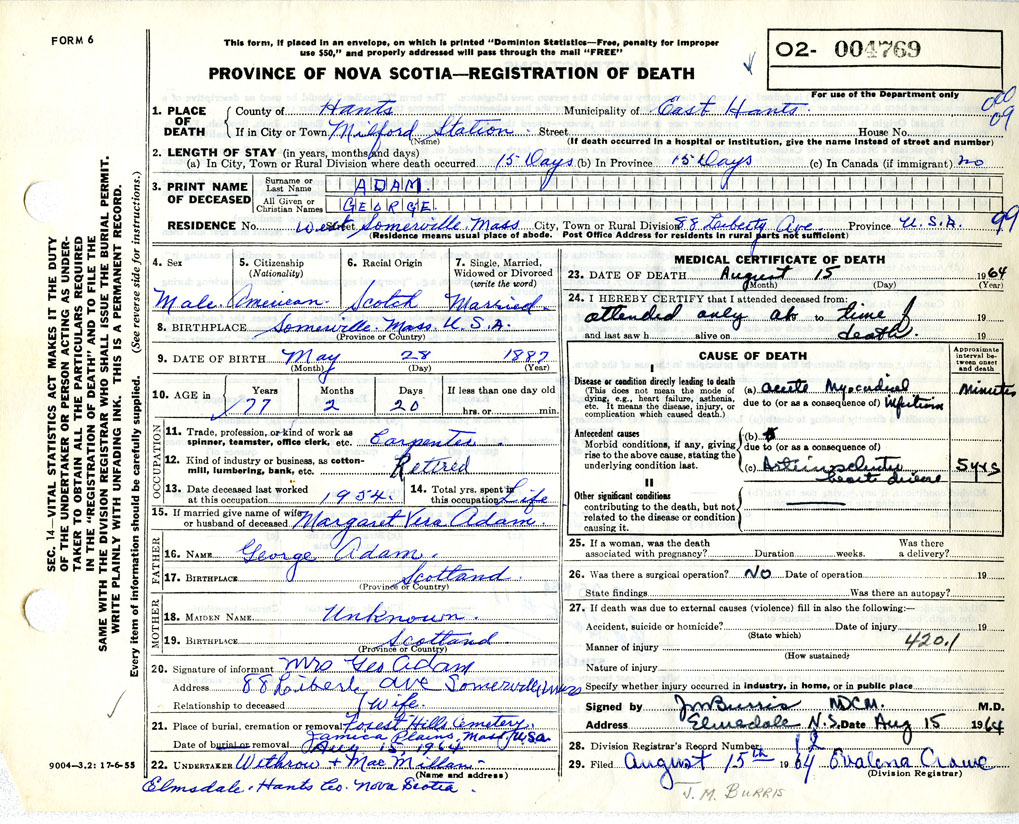 FORM 6
This form, if placed in an envelope, on which is printed "Dominion Statistics—Free, penalty for improper
use $50," and properly addressed will pass through the mail "FREE"
02- 004769
PROVINCE OF NOVA SCOTIA—REGISTRATION OF DEATH
For use of the Department only
000
09
1. PLACE OF DEATH
County of Hants Municipality of East Hants.
If in City or Town Milford Station. Street House No.
(Name) (If death occurred in a hospital or institution, give the name instead of street and number)
2. LENGTH OF STAY (in years, months, and days)
(a) In City, Town or Rural Division where death occurred 15 Days (b) In Province 15 Days (c) In Canada (if immigrant) no
3. PRINT NAME OF DECEASED
Surname or Last Name ADAM.
All Given or Christian Names GEORGE.
RESIDENCE No. West Street Somerville. Mass City, Town or Rural Division 88 Liberty Ave. Province U.S.A. 99
(Residence means usual place of abode. Post Office Address for residents in rural parts not sufficient)
4. Sex 5. Citizenship (Nationality) 6. Racial Origin 7. Single, Married, Widowed or Divorced (write the word)
Male. American. Scotch Married.
8. BIRTHPLACE Somerville. Mass. U.S.A.
(Province or Country)
9. DATE OF BIRTH May 28 1887
(Month) (Day) (Year)
10. AGE in Years Months Days If less than one day old
77 2 20 hrs. or min.
OCCUPATION
11. Trade, profession, or kind of work as spinner, teamster, office clerk, etc. Carpenter
12. Kind of industry or business, as cotton-mill, lumbering, bank, etc. Retired
13. Date deceased last worked at this occupation 1954. 14. Total yrs. spent in this occupation Life
15. If married give name of wife or husband of deceased Margaret Vera Adam.
FATHER
16. NAME George Adam.
17. BIRTHPLACE Scotland
(Province or Country)
MOTHER
18. MAIDEN NAME Unknown.
19. BIRTHPLACE Scotland
(Province or Country)
20. Signature of informant Mrs Geo Adam
Address 88 Ave Somerville Mass
Relationship to deceased Wife.
21. Place of burial, cremation or removal Forest Hills Cemetery.
Jamica Plains, Mass, U.S.A.
Date of burial or removal Aug 15, 1964
22. UNDERTAKER Withrow + MacMillan
(Name and address)
Elmsdale. Hants Co. Nova Scotia.
9004—3.2: 17-6-55
SEC. 14—VITAL STATISTICS ACT MAKES IT THE DUTY
OF THE UNDERTAKER OR PERSON ACTING AS UNDER-
TAKER TO OBTAIN ALL THE PARTICULARS REQUIRED
IN THE "REGISTRATION OF DEATH" AND TO FILE THE
SAME WITH THE DIVISION REGISTRAR WHO SHALL ISSUE THE BURIAL PERMIT.
WRITE PLAINLY WITH UNFADING INK. THIS IS A PERMANENT RECORD.
Every item of information should be carefully supplied. (See reverse side for instructions.)
MEDICAL CERTIFICATE OF DEATH
23. DATE OF DEATH August 15 1964
(Month) (Day) (Year)
24. I HEREBY CERTIFY that I attended deceased from:
attended only at to time of 19
and last saw h alive on death. 19
CAUSE OF DEATH
Approximate interval between onset and death
I
Disease or condition directly leading to death
(This does not mean the mode of dying, e.g., heart failure, asthenia, etc. It means the disease, injury, or complication which caused death.)
(a) acute Myocardial Minutes
due to (or as a consequence of) infarction
Antecedent causes
Morbid conditions, if any, giving rise to the above cause, stating the underlying condition last.
(b)
due to (or as a consequence of)
(c) Arteriosclerotic 5 yrs
heart disease
II
Other significant conditions
contributing to the death, but not related to the disease or condition causing it.
25. If a woman, was the death associated with pregnancy? Duration weeks. Was there a delivery?
26. Was there a surgical operation? NO Date of operation 19
State findings Was there an autopsy?
27. If death was due to external causes (violence) fill in also the following:—
Accident, suicide or homicide? Date of injury 19
(State which)
Manner of injury 420.1
(How sustained)
Nature of injury
Specify whether injury occurred in industry, in home, or in public place
Signed by JM Burris MDCM. M.D.
Address Elmsdale N.S. Date Aug 15 1964
28. Division Registrar's Record Number 12
29. Filed August 15th 1964 Ovalena Crowe
(Division Registrar)
J. M. BURRIS